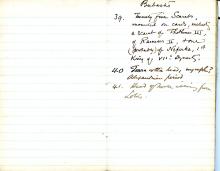 Bubastis
39. Twenty five Scarabs,
mounted on cards, including
a scarab of Thothmes III,
of Rameses II, & one
of Neferka, 1st
King of VIIth Dynasty.
40 Terra cotta head,
Alexandrian period.
41. Head of Horus, rising from
Lotus.